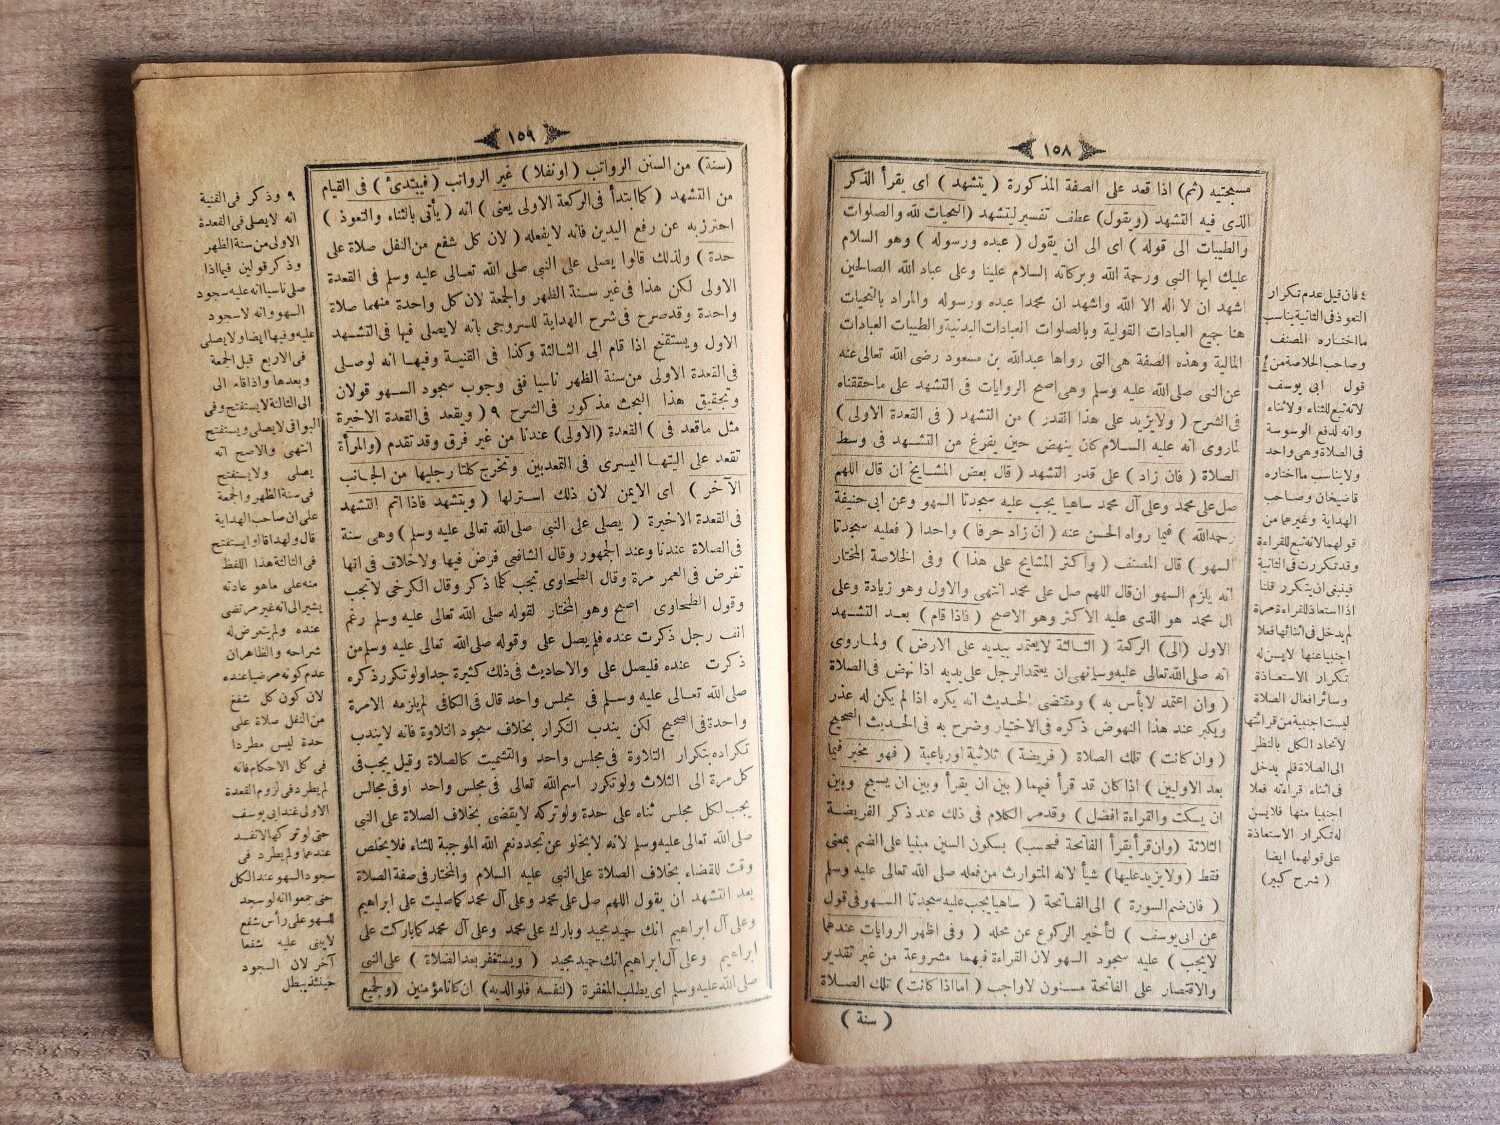 ١٥٨
مسبحتيه (ثم) اذا قعد على الصفة المذكورة ( يتشهد ) اى يقرأ الذكر
الذى فيه التشهد (ويقول) عطف تفسير ليتشهد (التحيات لله والصلوات
والطيبات الى قوله ) اى الى ان يقول ( عبده ورسوله ) وهو السلام
عليك ايها النبى ورحمة الله وبركاته السلام علينا وعلى عباد الله الصالحين
اشهد ان لا اله الا الله واشهد ان محمدا عبده ورسوله والمراد بالتحيات
هنا جميع العبادات القولية وبالصلوات العبادات البدنية والطيبات العبادات
المالية وهذه الصفة هى التى رواها عبدالله بن مسعود رضى الله تعالى عنه
عن النبى صلى الله عليه وسلم وهى اصح الروايات فى التشهد على ماحققناه
فى الشرح ( ولا يزيد على هذا القدر ) من التشهد ( فى القعدة الاولى )
لماروى انه عليه السلام كان ينهض حين يفرغ من التشهد فى وسط
الصلاة ( فان زاد ) على قدر التشهد ( قال بعض المشايخ ان قال اللهم
صل على محمد وعلى آل محمد ساهيا يجب عليه سجدتا السهو وعن ابى حنيفة
رحمه الله ) فيما رواه الحسن عنه ( ان زاد حرفا ) واحدا ( فعليه سجدتا
السهو ) قال المصنف ( واكثر المشايخ على هذا ) وفى الخلاصة المختار
انه يلزم السهو ان قال اللهم صل على محمد انتهى والاول وهو زيادة وعلى
آل محمد هو الذى عليه الاكثر وهو الاصح ( فاذا قام ) بعد التشهد
الاول (الى) الركعة ( الثالثة لايعتمد بيديه على الارض ) ولماروى
انه صلى الله تعالى عليه وسلم نهى ان يعتمد الرجل على يديه اذا نهض فى الصلاة
( وان اعتمد لابأس به ) ومقتضى الحديث انه يكره اذا لم يكن له عذر
ويكبر عند هذا النهوض ذكره فى الاختيار وصرح به فى الحديث الصحيح
( وان كانت ) تلك الصلاة ( فريضة ) ثلاثية اورباعية ( فهو مخير فيما
بعد الاوليين ) اذا كان قد قرأ فيهما ( بين ان يقرأ وبين ان يسبح وبين
ان يسكت والقراءة افضل ) وقدمر الكلام فى ذلك عند ذكر الفريضة
الثلاثة (وان قرأ يقرأ الفاتحة فحسب) بسكون السين مبنيا على الضم بمعنى
فقط (ولا يزيد عليها) شيأ لانه المتوارث من فعله صلى الله تعالى عليه وسلم
( فان ضم السورة ) الى الفاتحة ( ساهيا يجب عليه سجدتا السهو فى قول
عن ابى يوسف ) لتأخير الركوع عن محله ( وفى اظهر الروايات عندهما
لايجب ) عليه سجود السهو لان القراءة فيهما مشروعة من غير تقدير
والاقتصار على الفاتحة مسنون لاواجب ( اما اذا كانت) تلك الصلاة
( سنة )
٤ فان قيل عدم تكرار
التعوذ فى الثانية يناسب
ما اختاره المصنف
وصاحب الخلاصة من
قول ابى يوسف
لانه تبع للثناء ولا ثناء
وانه لدفع الوسوسة
فى الصلاة وهى واحد
ولا يناسب ما اختاره
قاضيخان وصاحب
الهداية وغيرهما من
قولهما لانه تبع للقراءة
وقد تكررت فى الثانية
فينبغى ان يتكرر قلنا
اذا استعاذ للقراءة مرة
لم يدخل فى اثنائها فعلا
اجنبيا عنها لا يسن له
تكرار الاستعاذة
وسائر افعال الصلاة
ليست اجنبية من قرائتها
لاتحاد الكل بالنظر
الى الصلاة فلم يدخل
فى اثناء قراءته فعلا
اجنبيا منها فلا يسن
له تكرار الاستعاذة
على قولهما ايضا
( شرح كبير )
١٥٩
(سنة) من السنن الرواتب ( اونفلا ) غير الرواتب ( فيبتدئ ) فى القيام
من التشهد ( كما ابتدأ فى الركعة الاولى يعنى ) انه ( يأتى بالثناء والتعوذ )
احترز به عن رفع اليدين فانه لا يفعله ( لان كل شفع من النفل صلاة على
حدة ) ولذلك قالوا يصلى على النبى صلى الله تعالى عليه وسلم فى القعدة
الاولى لكن هذا فى غير سنة الظهر والجمعة لان كل واحدة منهما صلاة
واحدة وقد صرح فى شرح الهداية للسروجى بانه لايصلى فيها فى التشهد
الاول ويستفتح اذا قام الى الثالثة وكذا فى القنية وفيها انه لو صلى
فى القعدة الاولى من سنة الظهر ناسيا ففى وجوب سجود السهو قولان
وتحقيق هذا البحث مذكور فى الشرح ٩ ( ويقعد فى القعدة الاخيرة
مثل ماقعد فى ) القعدة (الاولى) عندنا من غير فرق وقد تقدم (والمرأة
تقعد على اليتها اليسرى فى القعدتين وتخرج كلتا رجليها من الجانب
الآخر ) اى الايمن لان ذلك استر لها ( ويتشهد فاذا اتم التشهد
فى القعدة الاخيرة ( يصلى على النبى صلى الله تعالى عليه وسلم ) وهى سنة
فى الصلاة عندنا وعند الجمهور وقال الشافعى فرض فيها ولا خلاف فى انها
تفرض فى العمر مرة وقال الطحاوى تجب كلما ذكر وقال الكرخى لاتجب
وقول الطحاوى اصح وهو المختار لقوله صلى الله تعالى عليه وسلم رغم
انف رجل ذكرت عنده فلم يصل على وقوله صلى الله تعالى عليه وسلم من
ذكرت عنده فليصل على والاحاديث فى ذلك كثيرة جدا ولو تكرر ذكره
صلى الله تعالى عليه وسلم فى مجلس واحد قال فى الكافى لم يلزمه الامرة
واحدة فى الصحيح لكن يندب التكرار بخلاف سجود التلاوة فانه لايندب
تكراره بتكرار التلاوة فى مجلس واحد والتشميت كالصلاة وقيل يجب فى
كل مرة الى الثلاث ولو تكرر اسم الله تعالى فى مجلس واحد او فى مجالس
يجب لكل مجلس ثناء على حدة ولو تركه لايقضى بخلاف الصلاة على النبى
صلى الله تعالى عليه وسلم لانه لايخلو عن تجدد نعم الله الموجبة للثناء فلا يخلص
وقت للقضاء بخلاف الصلاة على النبى عليه السلام والمختار فى صفة الصلاة
بعد التشهد ان يقول اللهم صل على محمد وعلى آل محمد كما صليت على ابراهيم
وعلى آل ابراهيم انك حميد مجيد وبارك على محمد وعلى آل محمد كما باركت على
ابراهيم وعلى آل ابراهيم انك حميد مجيد ( ويستغفر بعد الصلاة ) على النبى
صلى الله عليه وسلم اى يطلب المغفرة (لنفسه فلوالديه) ان كانا مؤمنين (ولجميع
٩ وذكر فى القنية
انه لا يصلى فى القعدة
الاولى من سنة الظهر
وذكر قولين فيما اذا
صلى ناسيا انه عليه سجود
السهو وانه لا سجود
عليه وفيها ايضا ولا يصلى
فى الاربع قبل الجمعة
وبعدها واذا قام الى
الثالثة لا يستفتح وفى
البواقى لا يصلى ويستفتح
انتهى والاصح انه
يصلى ولا يستفتح
فى سنة الظهر والجمعة
على ان صاحب الهداية
قال ولهذا قالوا يستفتح
فى الثالثة هذا اللفظ
منه على ما هو عادته
يشير الى انه غير مرتضى
عنده ولم يتعرض له
شراحه والظاهر ان
عدم كونه مرضيا عنده
لان كون كل شفع
من النفل صلاة على
حدة ليس مطردا
فى كل الاحكام فانه
لم يطرد فى لزوم القعدة
الاولى عند ابى يوسف
حتى لو تركها لا تفسد
عندهما ولم يطرد فى
سجود السهو عند الكل
حتى جمعوا انه لو سجد
للسهو على رأس شفع
لا يبنى عليه شفعا
آخر لان السجود
حينئذ يبطل